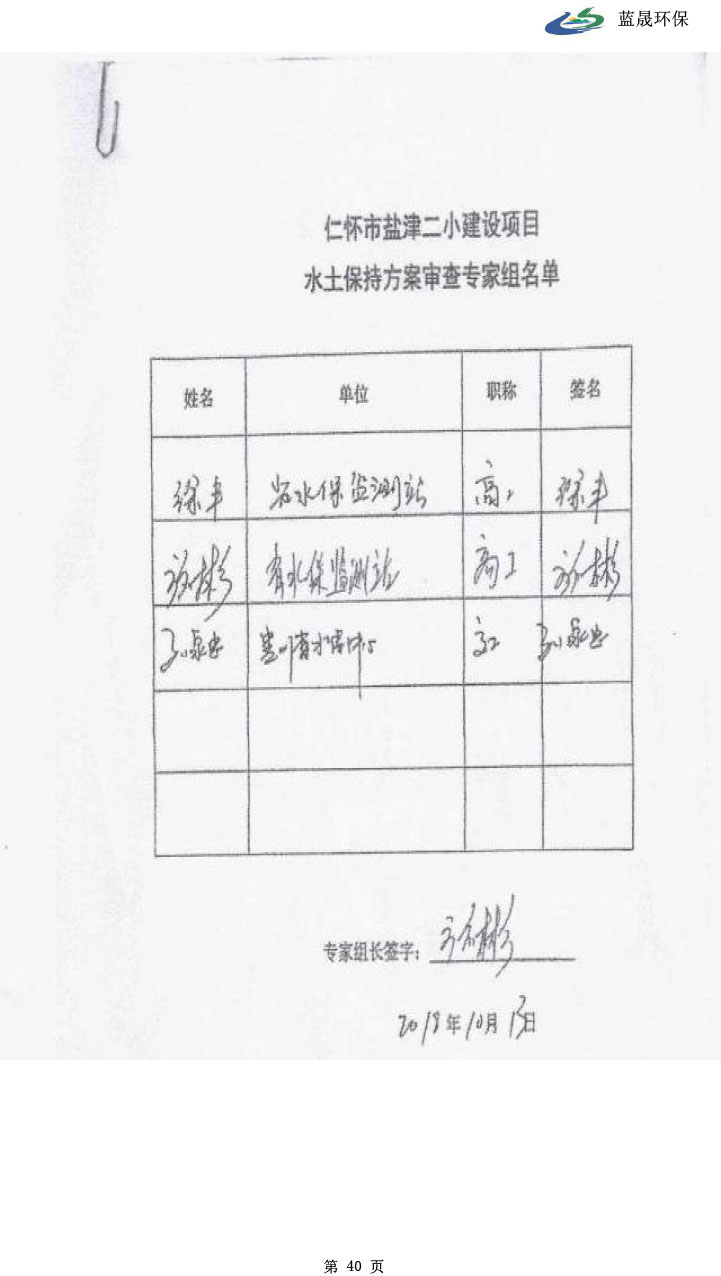 蓝晟环保
仁怀市盐津二小建设项目
水土保持方案审查专家组名单
姓名 单位 职称 签名
徐丰 省水保监测站 高工 徐丰
彬 省水保监测站 高工 彬
高工
专家组长签字: 彬
2018年10月13日
第 40 页